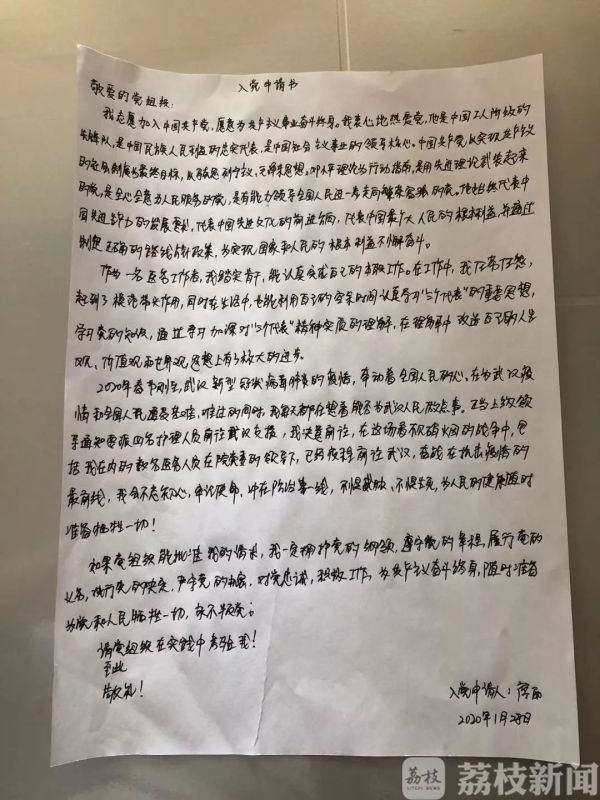 入党申请书
敬爱的党组织:
我志愿加入中国共产党,愿意为共产主义事业奋斗终身。我衷心地热爱党,她是中国工人阶级的
先锋队,是中国各族人民利益的忠实代表,是中国社会主义事业的领导核心。中国共产党以实现共产主义
的社会制度为最终目标,以马克思列宁主义、毛泽东思想、邓小平理论为行动指南,是用先进理论武装起来
的党,是全心全意为人民服务的党,是有能力领导全国人民进一步走向繁荣富强的党。她始终代表中
国先进生产力的发展要求,代表中国先进文化的前进方向,代表中国最广大人民的根本利益,并通过
制定正确的路线方针政策,为实现国家和人民的根本利益不懈奋斗。
作为一名医务工作者,我踏实肯干,能认真完成自己的本职工作。在工作中,我任劳任怨,
起到了模范带头作用,同时在生活中,也能利用自己的空余时间认真学习“三个代表”的重要思想,
学习党的知识,通过学习加深对“三个代表”精神实质的理解,在理解中改造自己的人生
观、价值观和世界观,思想上有了极大的进步。
2020年春节刚至,武汉新型冠状病毒肺炎的疫情,牵动着全国人民的心。在为武汉疫
情和全国人民
的同时,我每天都在想着能否为武汉人民做点事。正当上级领
导通知要派四名护理人员前往武汉支援,我决意前往,在这场看不见硝烟的战争中,包
括我在内的数名医务人员在院党委的领导下,已经启程前往武汉,奋战在抗击疫情的
最前线,我会不忘初心,牢记使命,冲在防治第一线,不惧威胁、不惧生死,为人民的健康随时
准备牺牲一切!
如果党组织能批准我的请求,我一定拥护党的纲领,遵守党的章程,履行党的
义务,执行党的决定,严守党的秘密,对党忠诚,积极工作,为共产主义奋斗终身,随时准备
为党和人民牺牲一切,永不叛党。
请党组织在实践中考验我!
至此
敬礼!
入党申请人:
2020年1月28日
荔枝
LITCHI NEWS
荔枝新闻